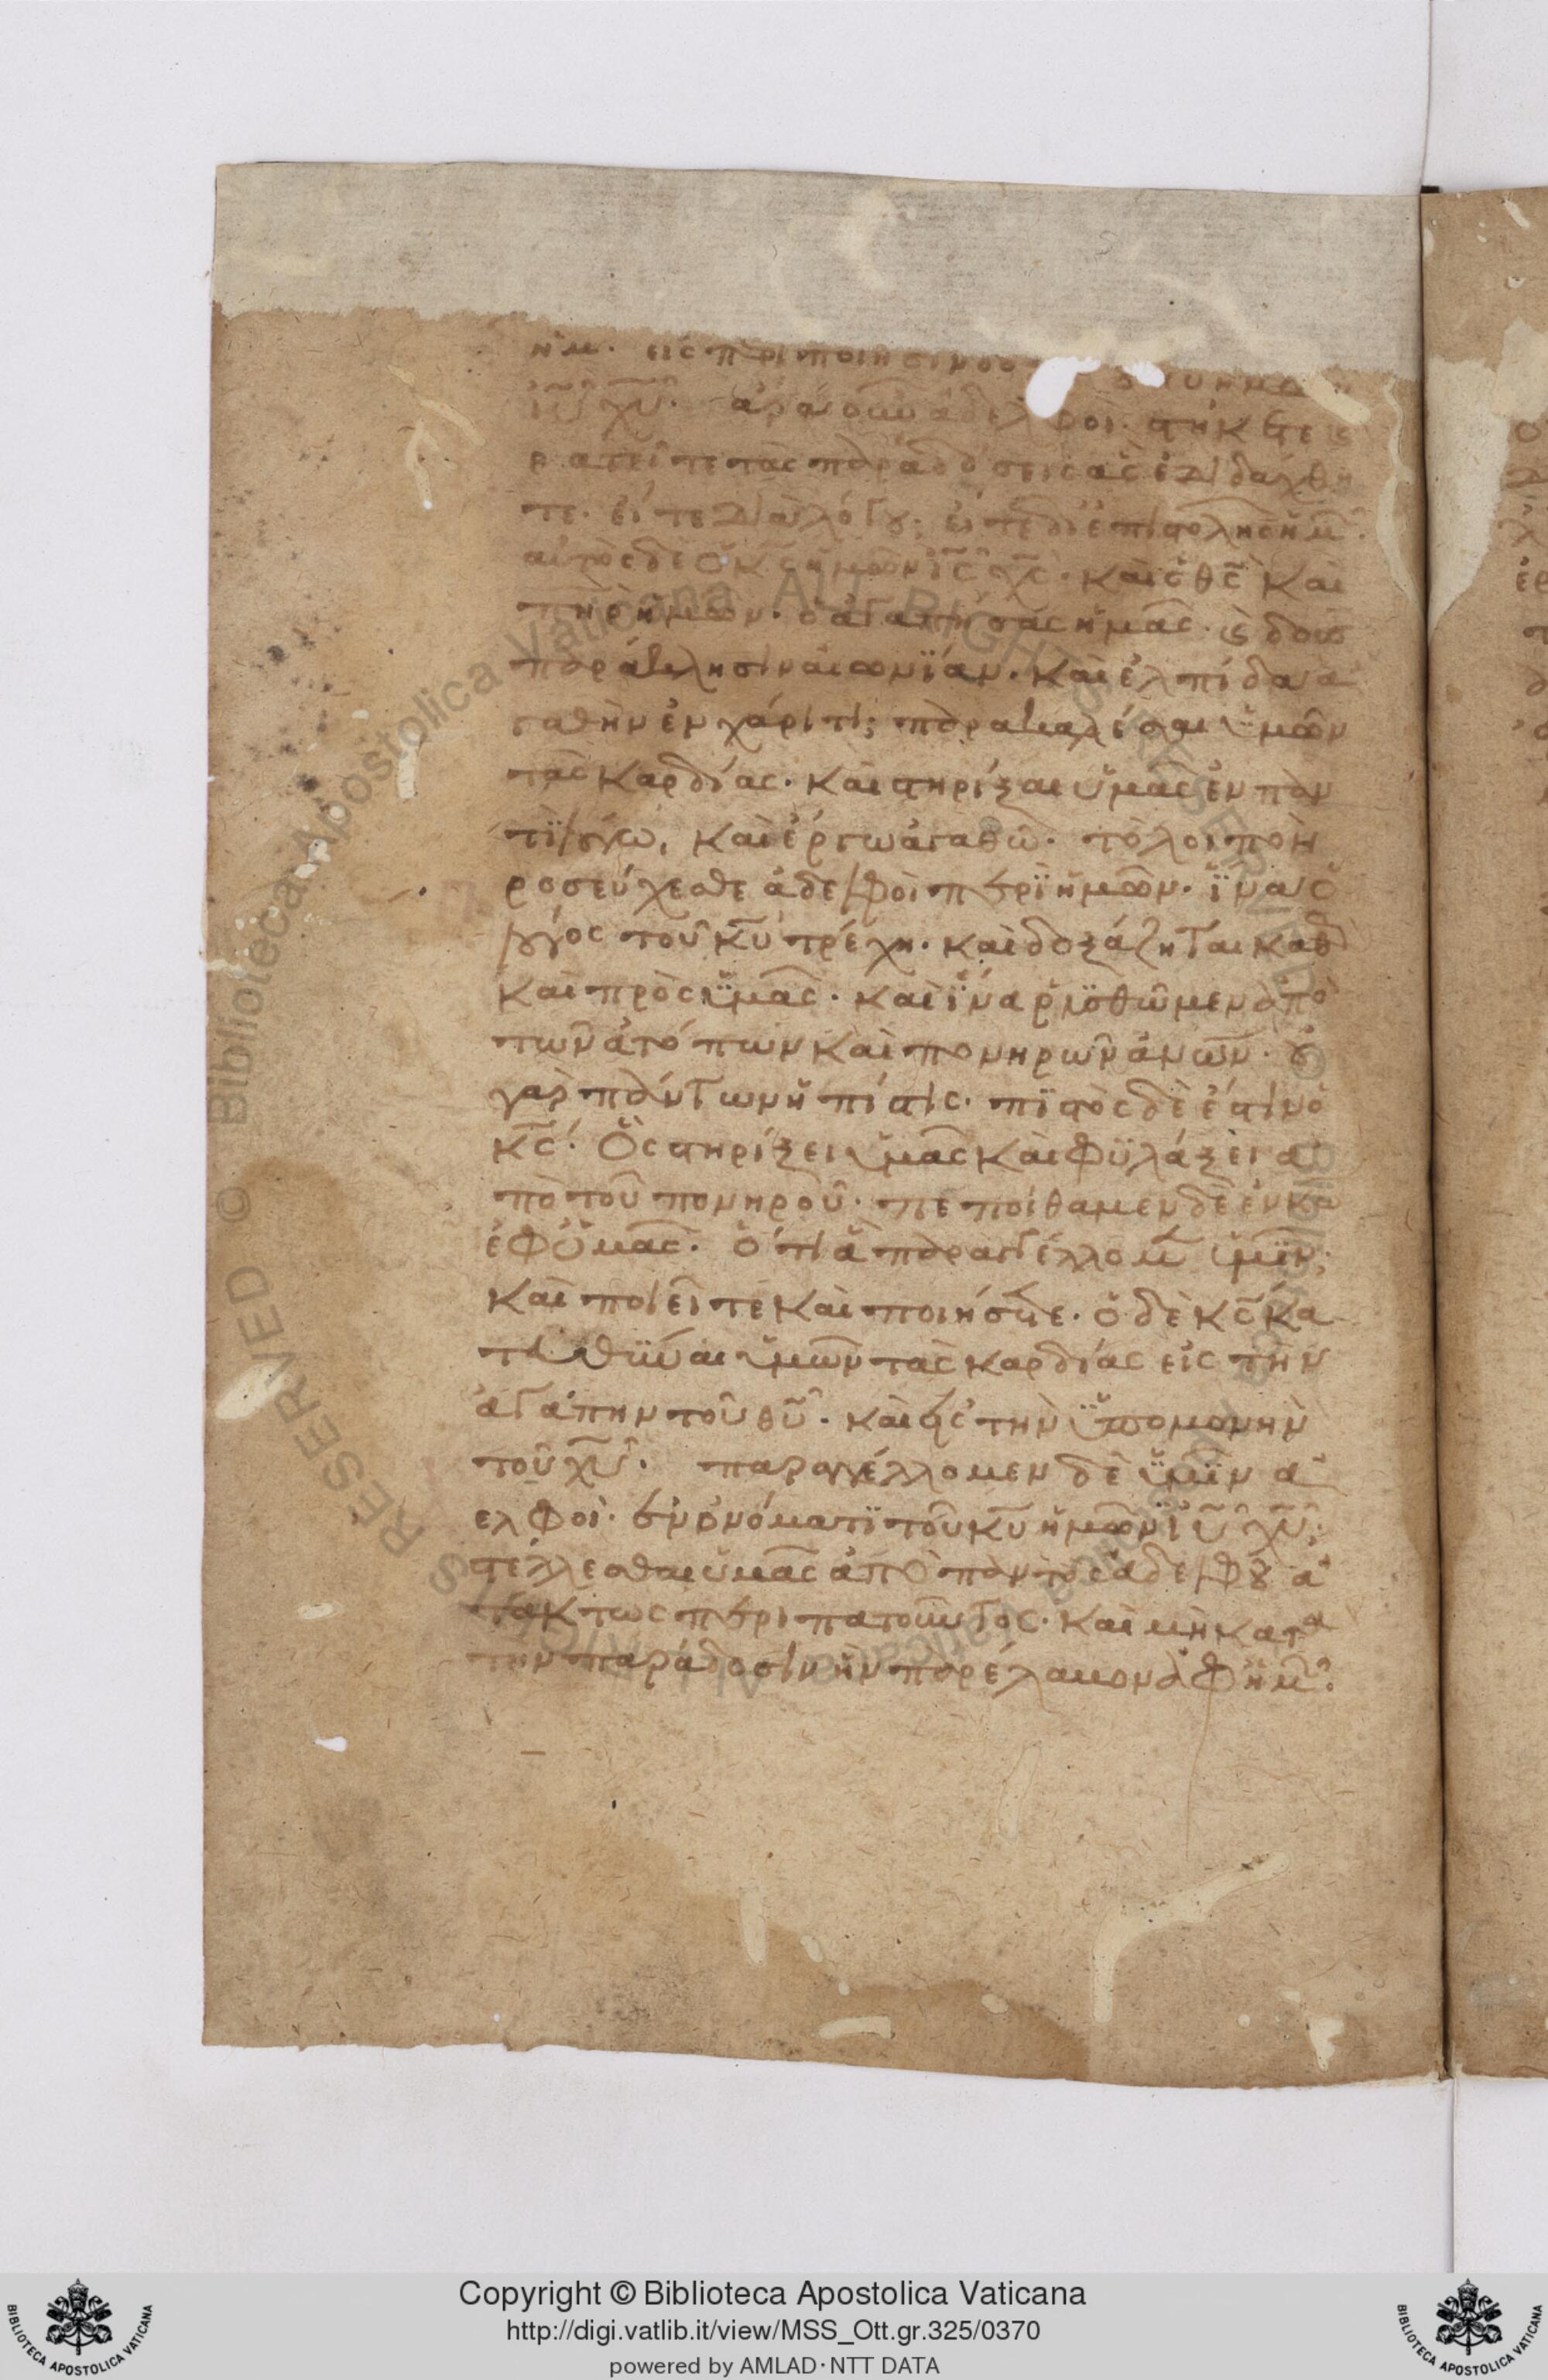 ημ. εἰς περιποίησιν δο ου ημω
ἰῦ χῦ. ἄρα οὖν ἀδελφοὶ. στήκετε ϛ
ρατεῖτε τὰς παραδόσεις ἃς ἐδιδάχθη
τε. εἴτε διαλόγου; εἴτε δι ἐπιστολῆς ἡμ.
αὐτὸς δὲ ὁ κ̅ς̅ ἡμῶν ι̅ς̅ χ̅ς̅. καὶ ὁ θ̅ς̅ καὶ
πηρ ἡμῶν. ὁ ἀγαπήσας ἡμᾶς. ϛ δοὺς
παράκλησιν αἰωνΐαν. καὶ ἐλπίδα ἀ
γαθὴν ἐν χάριτι; παρακαλέσαι ὑμῶν
τὰς καρδίας. καὶ στηρίξαι ὑμᾶς ἐν παν
τῒ λόγω, καὶ ἔργω ἀγαθῶ. τὸ λοιπὸ π
ροσεύχεσθε ἀδελφοὶ περῒ ἡμῶν. ἵνα ὁ
λόγος τοῦ κ̅υ̅ τρέχη. καὶ δοξάζηται καθ
καὶ πρὸς ὑμᾶς. καὶ ἵνα ρϋσθῶμεν ἀπὸ
τῶν ἀτόπων καὶ πονηρῶν ἀνων. οὐ
γὰρ πάντων ἡ πίστις. πϊστὸς δὲ ἐστιν ὁ
κ̅ς̅. ὃς στηρίξει ὑμᾶς καὶ φϋλάξει ἀ
πὸ τοῦ πονηροῦ. πεποίθαμεν δὲ ἐν κω
ἐφ ὑμᾶς. ὅτι ἃ παραγγέλλομ ὑμῖν;
καὶ ποιεῖτε καὶ ποιήσετε. ὁ δὲ κ̅ς̅ κα
τευθϋναι ὑμῶν τὰς καρδίας εἰς τὴν
ἀγάπην τοῦ θ̅υ̅. καὶ εἰς τὴν ὑπομονὴν
τοῦ χ̅υ̅. παραγγέλλομεν δὲ ὑμῖν ἀ
ελφοὶ. ἐν ὀνόματϊ τοῦ κ̅υ̅ ἡμῶν ι̅υ̅ χ̅υ̅;
στέλλεσθαι ὑμᾶς ἀπὸ παντὸς ἀδελφοῦ ἀ
τάκτως περιπατοῦντος. καὶ μὴ κατὰ
τὴν παράδοσιν ἣν παρέλαβον ἀφ ἡμ.
Copyright © Biblioteca Apostolica Vaticana
http://digi.vatlib.it/view/MSS_Ott.gr.325/0370
powered by AMLAD·NTT DATA